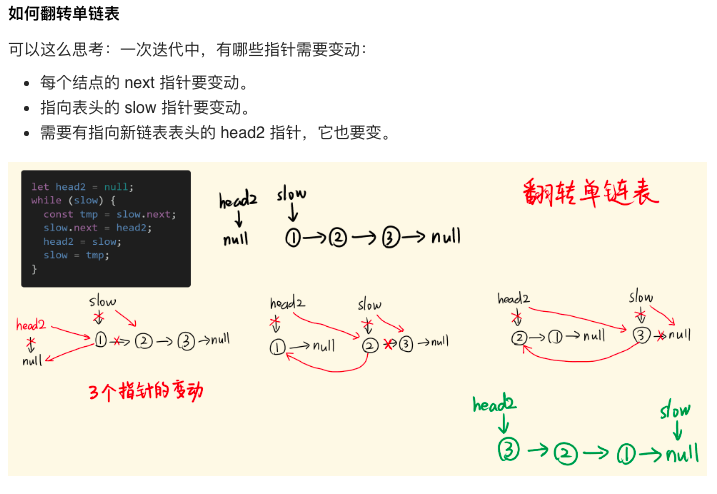 如何翻转单链表
可以这么思考：一次迭代中，有哪些指针需要变动：
每个结点的 next 指针要变动。
指向表头的 slow 指针要变动。
需要有指向新链表表头的 head2 指针，它也要变。
let head2 = null;
while (slow) {
const tmp = slow.next;
slow.next = head2;
head2 = slow;
slow = tmp;
}
head2 slow
null ① → ② → ③ → null
翻转单链表
slow
head2
① → ② → ③ → null
null
3个指针的变动
head2 slow
① → null ② → ③ → null
head2 slow
② → ① → null ③ → null
head2 slow
③ → ② → ① → null